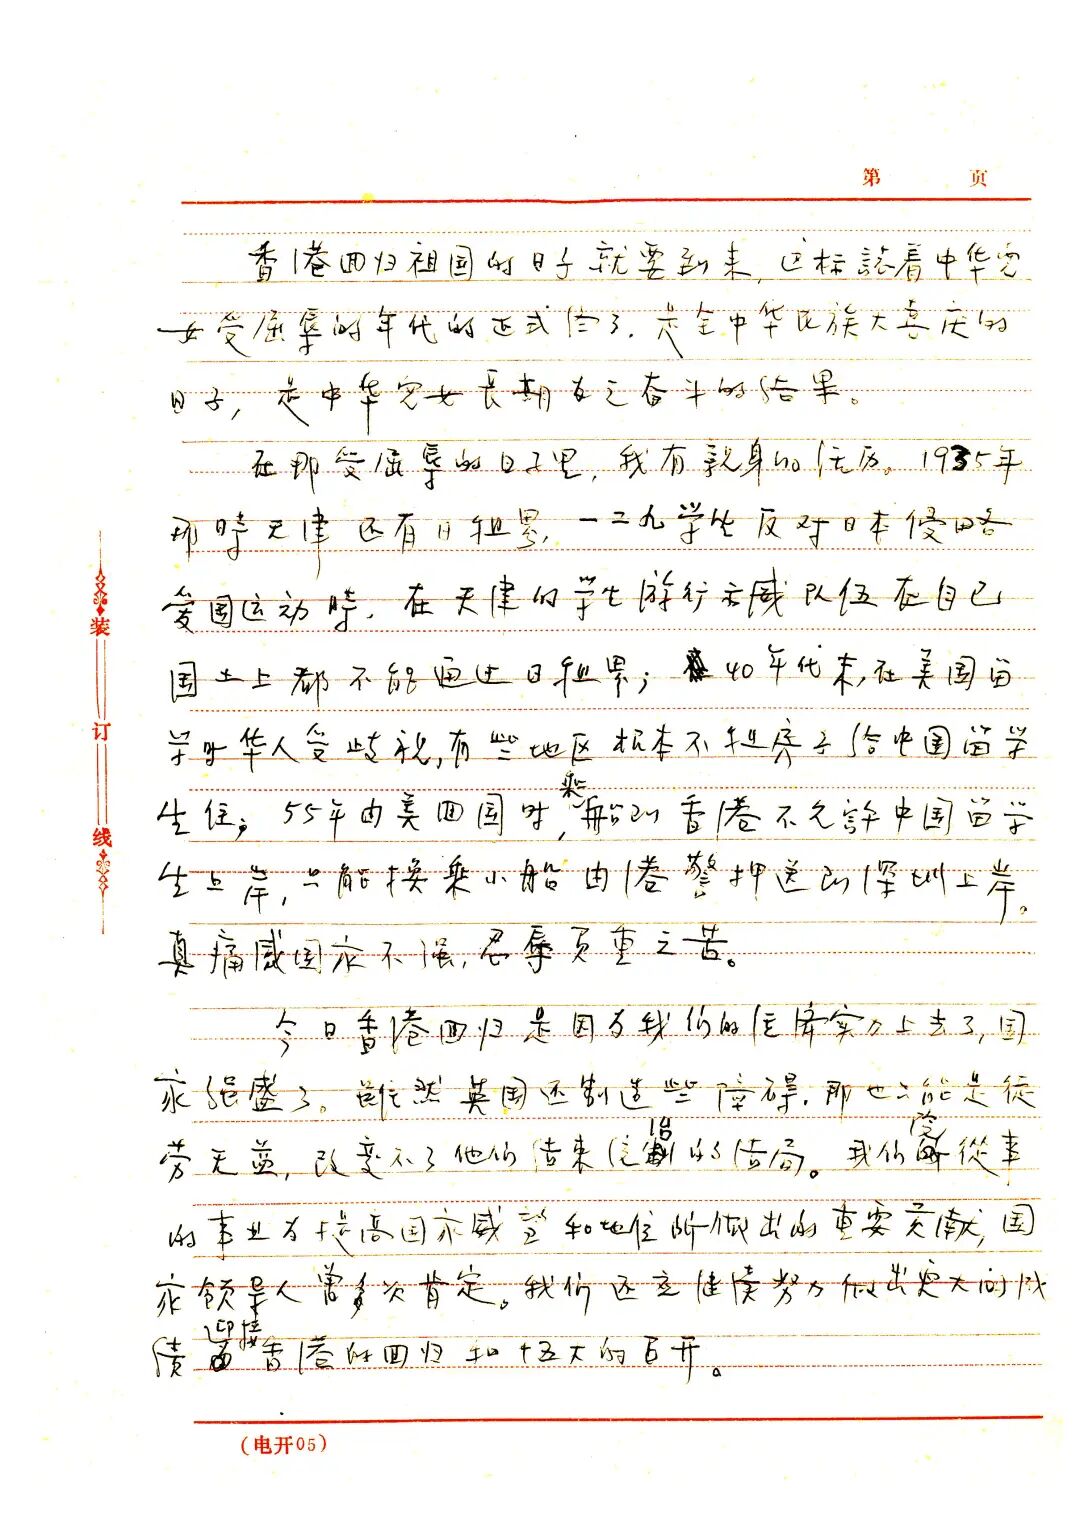 第 页
香港回归祖国的日子就要到来，这标誌着中华儿
女受屈辱的年代的正式终了，是全中华民族大喜庆的
日子，是中华儿女长期为之奋斗的结果。
在那受屈辱的日子里，我有亲身的经历。1935年
那時天津还有日租界，一二九学生反对日本侵略
爱国运动時，在天津的学生游行示威队伍在自己
国土上都不能通过日租界；40年代末，在美国留
学时华人受歧视，有些地区根本不租房子给中国留学
生住；55年由美回国时，乘船到香港不允許中国留学
生上岸，只能换乘小船由港警押送到深圳上岸。
真痛感国家不强，忍辱负重之苦。
今日香港回归是因为我们的经济实力上去了，国
家强盛了。雖然英国还制造些障碍，那也只能是徒
劳无益，改变不了他们结束统治的结局。我们院從事
的事业为提高国家威望和地位所做出的重要贡献，国
家领导人曾多次肯定。我们还应继续努力做出更大的成
绩迎接香港的回归和十五大的召开。
装
订
线
(电开05)